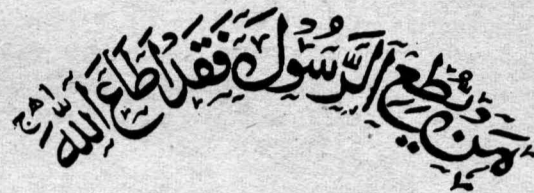 مَن يُطِعِ الرَّسُولَ فَقَدْ أَطَاعَ اللَّهَ